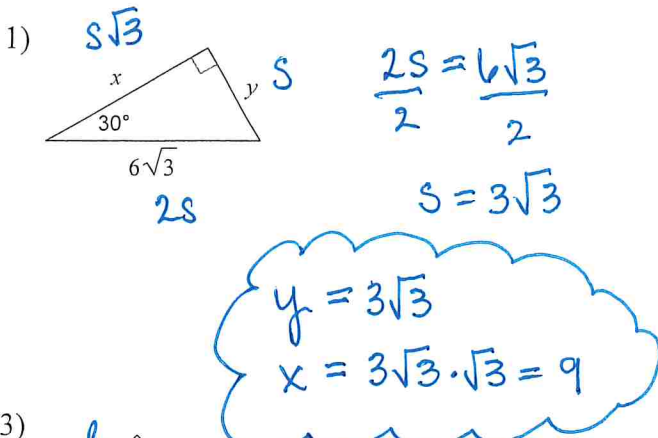 1) S√3
x
y S
30°
6√3
2S
2S = 6√3
2 2
S = 3√3
y = 3√3
x = 3√3·√3 = 9
3)